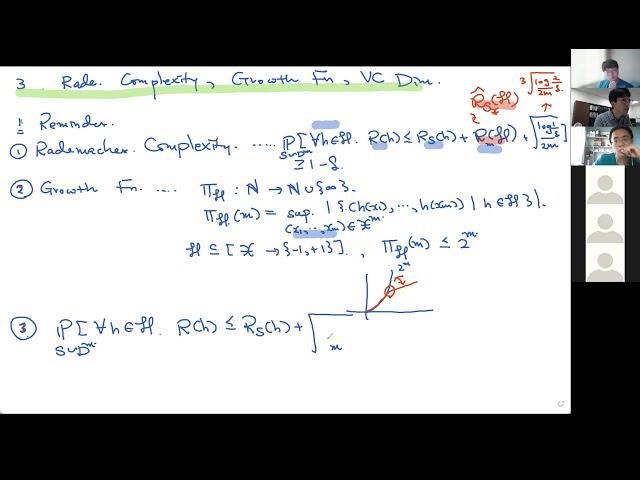 3 Rade. Complexity, Growth Fn, VC Dim.
R̂_S(H) 3√(log 2/δ / 2m)
1 Reminder.
① Rademacher Complexity. ..... P_{S∼D^m}[∀h∈H. R(h) ≤ R_S(h) + R_m(H) + √(log 1/δ / 2m)]
≥ 1-δ.
② Growth Fn. .... Π_H : ℕ → ℕ∪{∞}.
Π_H(m) = sup_{(x_1, ..., x_m)∈X^m} |{(h(x_1), ..., h(x_m)) | h∈H}|.
H ⊆ [X → {-1,+1}]. , Π_H(m) ≤ 2^m.
2^m
③ P_{S∼D^m}[∀h∈H. R(h) ≤ R_S(h) + √
m